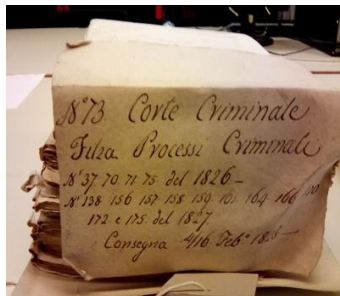 N° 73 Corte Criminale
Filza Processi Criminali
N° 37. 70. 71. 75. del 1826 —
N° 138 156 157 158 159 161 164 166
172 e 175. del 1827
Consegna Feb°